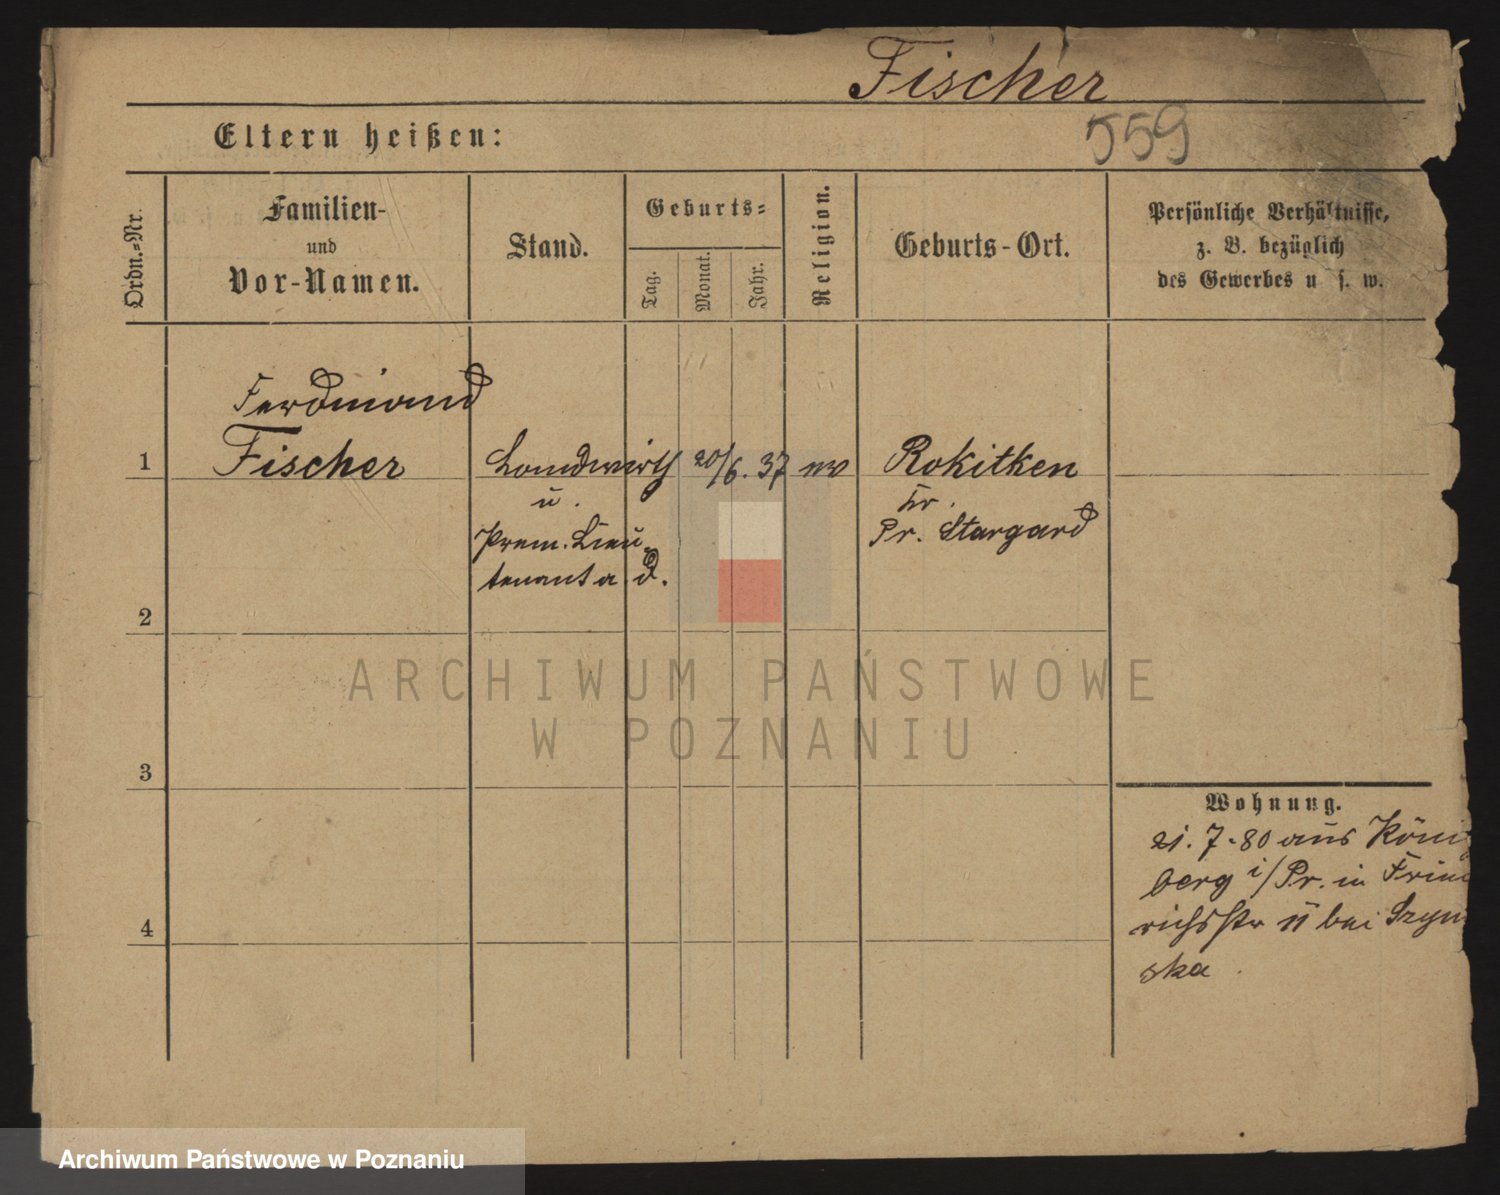 Fischer
559
Eltern heißen:
Ordn.-Nr.
Familien-
und
Vor-Namen.
Stand.
Geburts-
Tag.
Monat.
Jahr.
Religion.
Geburts-Ort.
Persönliche Verhältnisse,
z. B. bezüglich
des Gewerbes u s. w.
Ferdinand
1 Fischer Landwirth 20/6. 37 Rokitken
u. Kr.
Prem. Lieu- Pr. Stargard
tenant a. d.
2
3
4
Wohnung.
21. 7. 80 aus Köni
berg i/Pr. in
richsstr 11 bei
ska.
ARCHIWUM PAŃSTWOWE
W POZNANIU
Archiwum Państwowe w Poznaniu